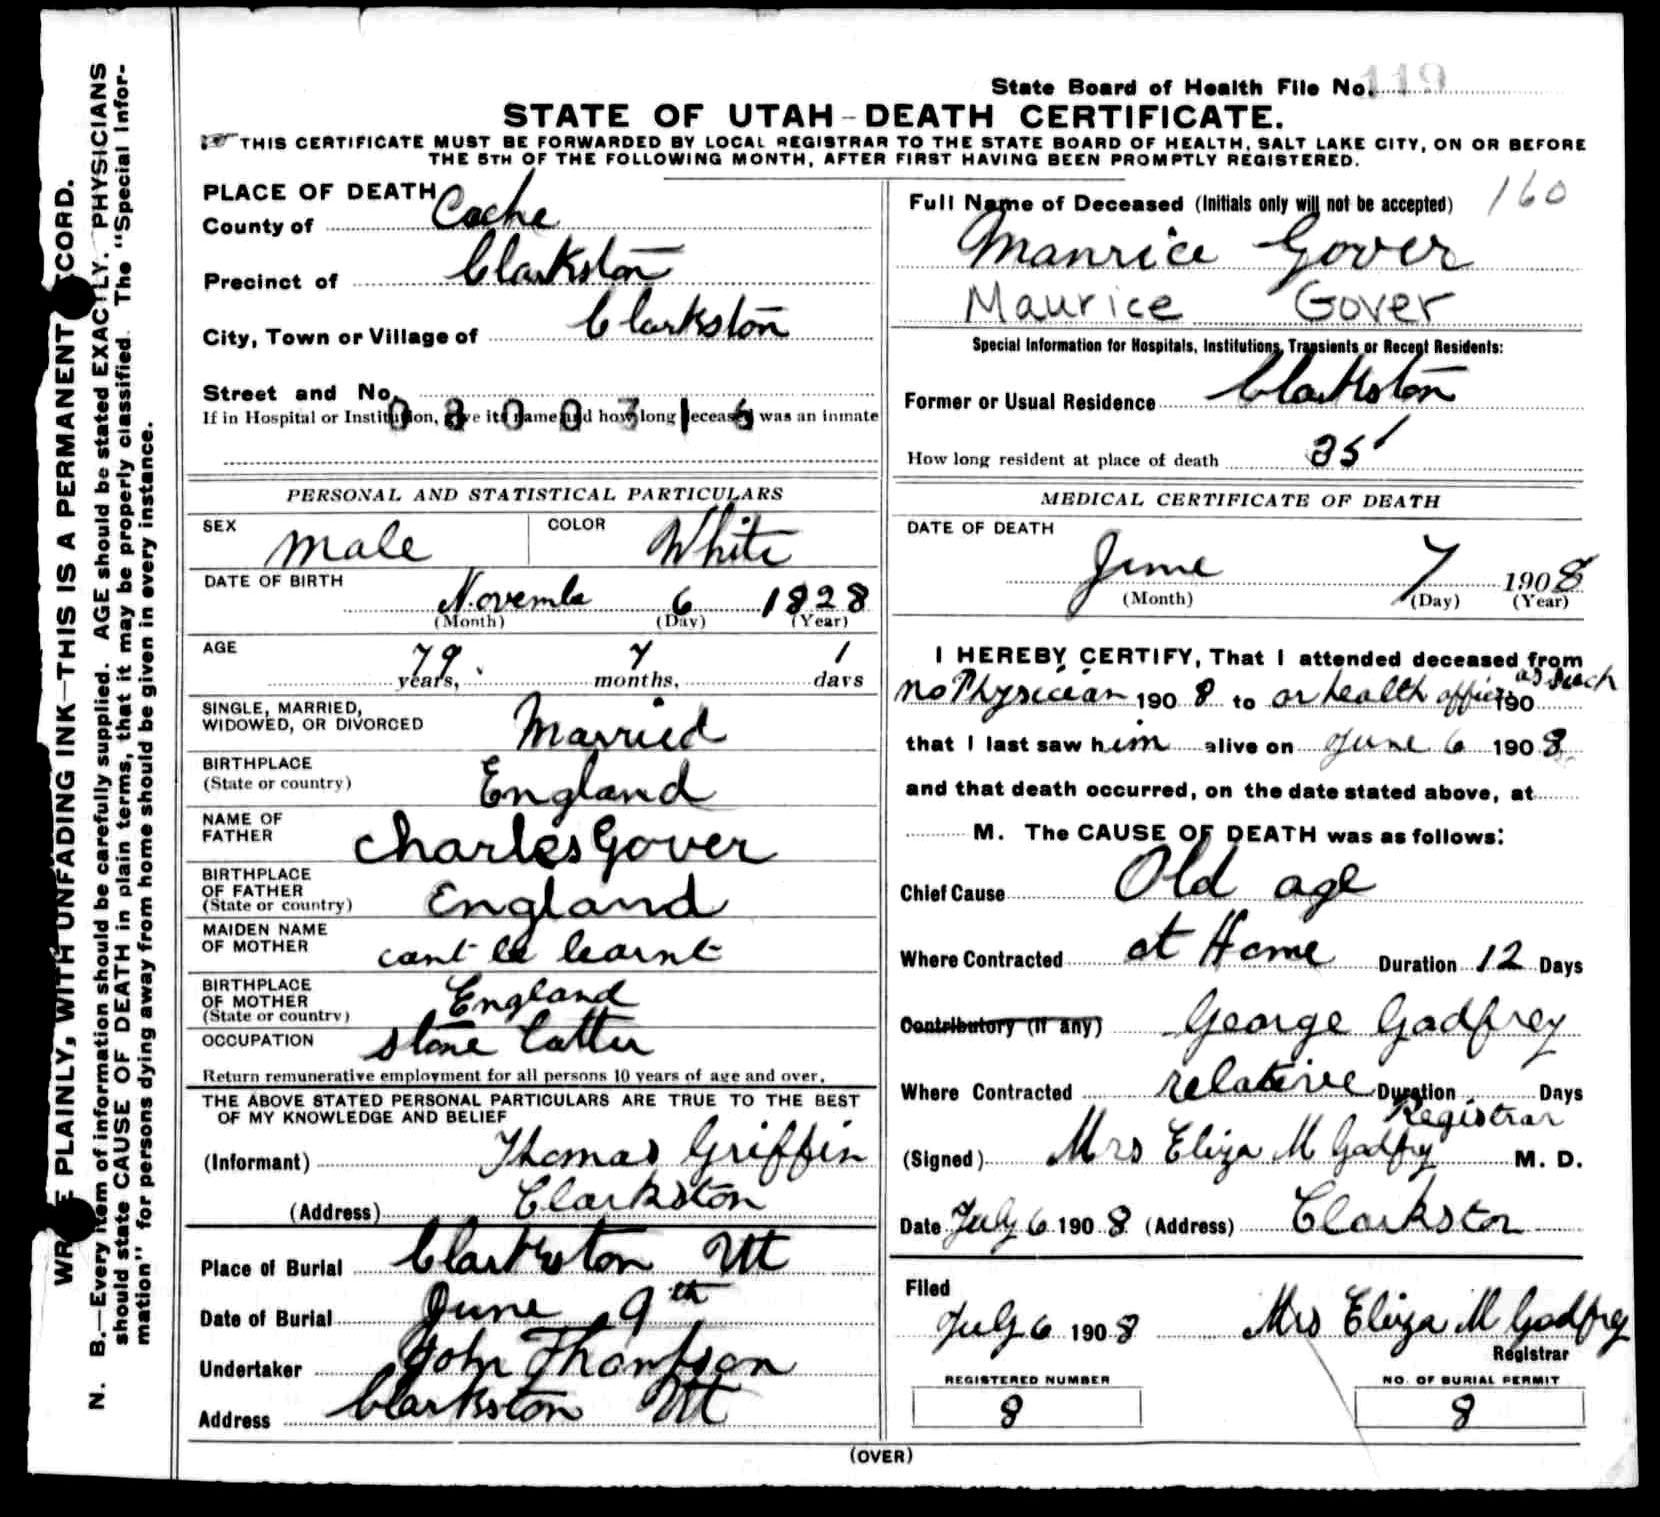 WRITE PLAINLY, WITH UNFADING INK—THIS IS A PERMANENT RECORD.
N. B.—Every item of information should be carefully supplied. AGE should be stated EXACTLY. PHYSICIANS
should state CAUSE OF DEATH in plain terms, that it may be properly classified. The "Special Infor-
mation" for persons dying away from home should be given in every instance.
State Board of Health File No. 119
STATE OF UTAH-DEATH CERTIFICATE.
THIS CERTIFICATE MUST BE FORWARDED BY LOCAL REGISTRAR TO THE STATE BOARD OF HEALTH, SALT LAKE CITY, ON OR BEFORE
THE 5TH OF THE FOLLOWING MONTH, AFTER FIRST HAVING BEEN PROMPTLY REGISTERED.
PLACE OF DEATH
County of Cache
Precinct of Clarkston
City, Town or Village of Clarkston
Street and No.
If in Hospital or Institution, give its name and how long deceased was an inmate
PERSONAL AND STATISTICAL PARTICULARS
SEX male COLOR White
DATE OF BIRTH
Novembe 6 1828
(Month) (Day) (Year)
AGE
79 years, 7 months, 1 days
SINGLE, MARRIED,
WIDOWED, OR DIVORCED Married
BIRTHPLACE
(State or country) England
NAME OF
FATHER Charles Gover
BIRTHPLACE
OF FATHER
(State or country) England
MAIDEN NAME
OF MOTHER cant be learnt
BIRTHPLACE
OF MOTHER
(State or country) England
OCCUPATION stone Cutter
Return remunerative employment for all persons 10 years of age and over.
THE ABOVE STATED PERSONAL PARTICULARS ARE TRUE TO THE BEST
OF MY KNOWLEDGE AND BELIEF
(Informant) Thomas Griffin
(Address) Clarkston
Place of Burial Clarkston Ut
Date of Burial June 9th
Undertaker John Thompson
Address Clarkston Ut
160
Full Name of Deceased (Initials only will not be accepted)
Manrice Gover
Maurice Gover
Special Information for Hospitals, Institutions, Transients or Recent Residents:
Former or Usual Residence Clarkston
How long resident at place of death 35
MEDICAL CERTIFICATE OF DEATH
DATE OF DEATH
June 7 1908
(Month) (Day) (Year)
I HEREBY CERTIFY, That I attended deceased from
no Physician 1908 to or health officer as such 190
that I last saw him alive on June 6 1908
and that death occurred, on the date stated above, at
M. The CAUSE OF DEATH was as follows:
Chief Cause Old age
Where Contracted at Home Duration 12 Days
Contributory (if any) George Godfrey
Where Contracted relative Duration Days
Registrar
(Signed) Mrs Eliza M Godfrey M. D.
Date July 6 1908 (Address) Clarkston
Filed
July 6 1908 Mrs Eliza M Godfrey
Registrar
REGISTERED NUMBER
8
NO. OF BURIAL PERMIT
8
(OVER)